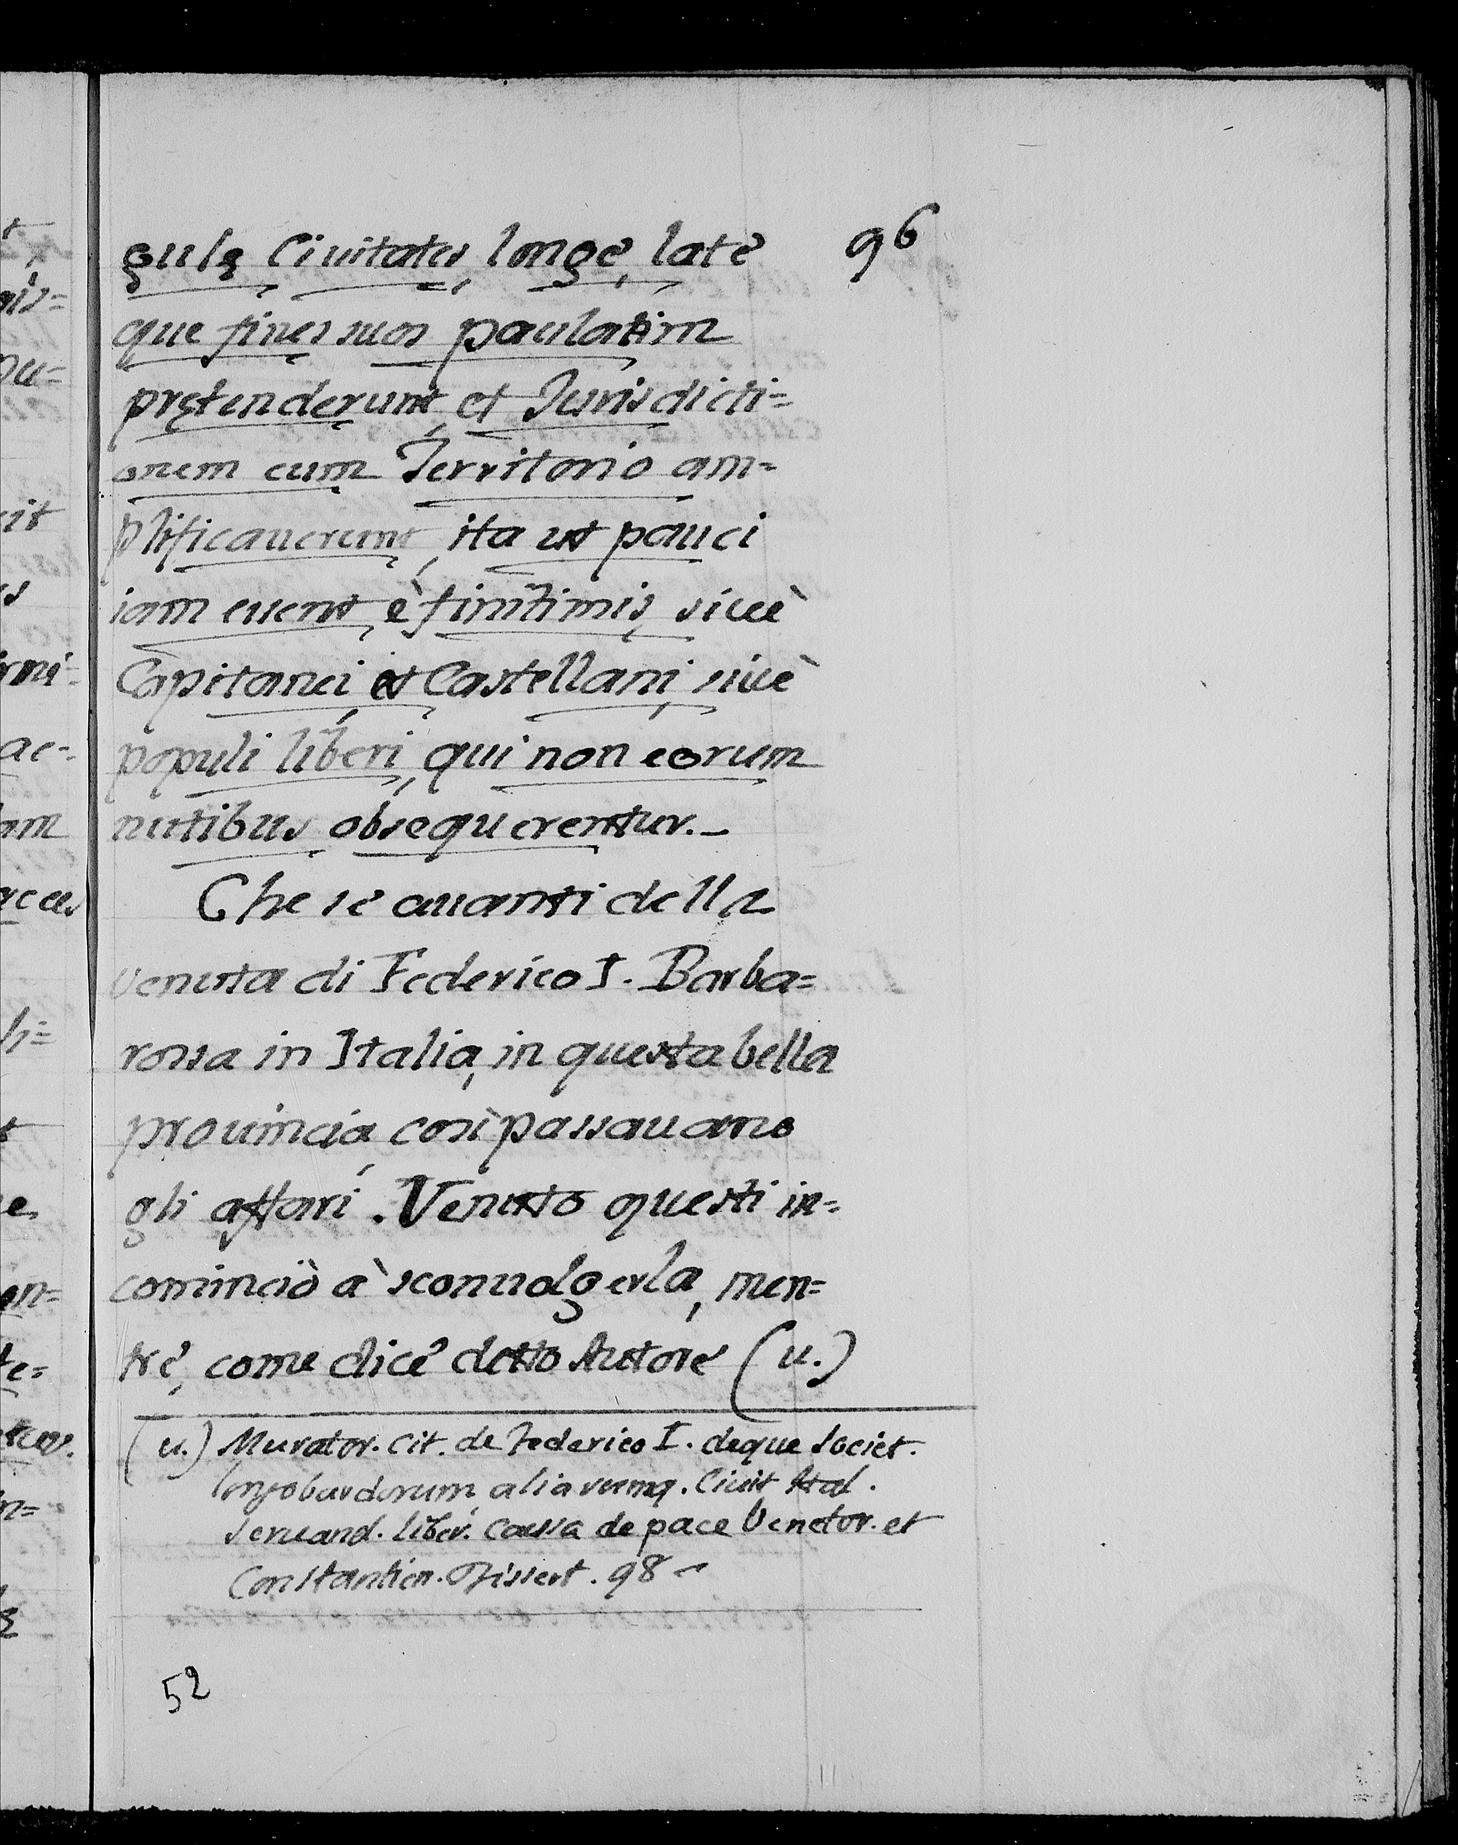 96
gulę Ciuitates longe, late
que fines suos paulatim
prętenderunt, et Jurisdicti=
onem cum Territorio am=
plificauerunt, ita ut pauci
iam erent, è finitimis, siuè
Capitanei, et Castellani, siuè
populi liberi, qui non eorum
nutibus obsequerentur._
Che se auanti della
venuta di Federico I. Barba=
rossa in Italia, in questa bella
prouincia, così passauano
gli affari. Venuto questi in=
cominciò à sconuolgerla, men=
tre, come dice detto Autore (u.)
(u.) Murator. cit. de Federico I. deque Societ.
longobardorum, aliarumq. Ciuit Ital.
seruand. liber. caussa de pace Venetor. et
Constantien. Dissert. 98
52